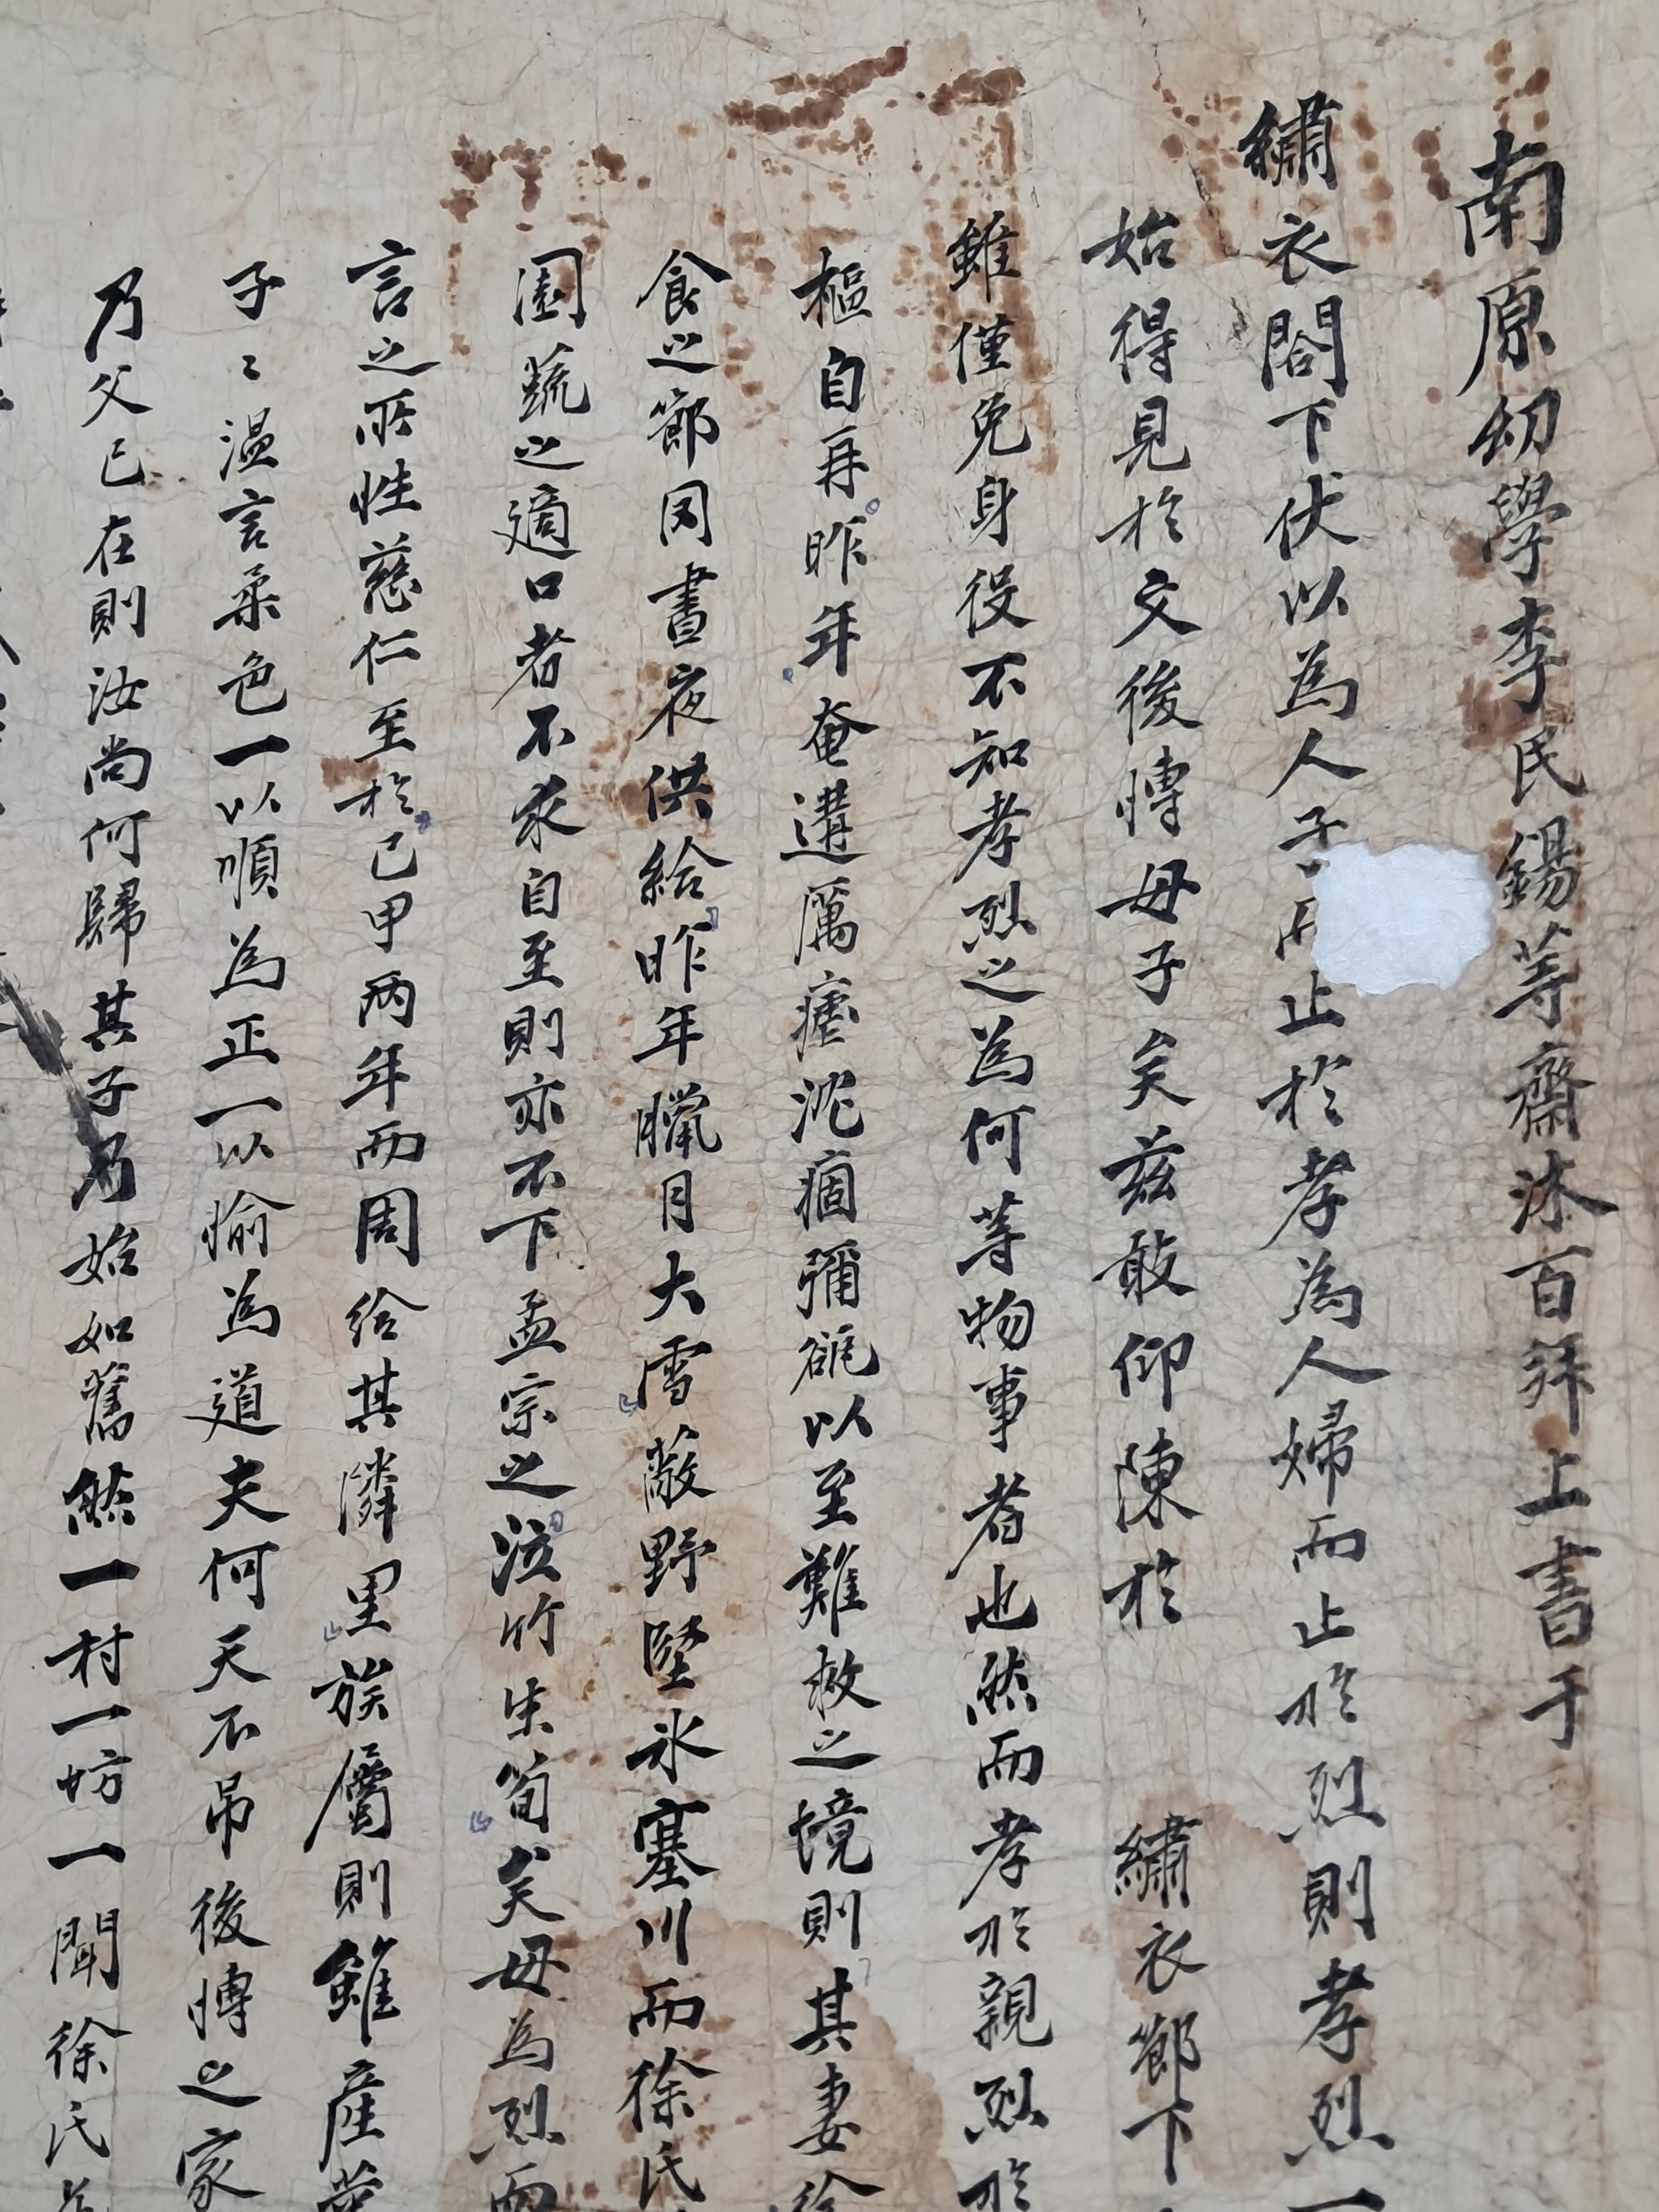 南原幼學李民錫等齋沐百拜上書于
繡衣閤下伏以為人子止於孝為人婦而止於烈則孝烈一
始得見於文後博母子矣茲敢仰陳於 繡衣節下
雖僅免身役不知孝烈之為何等物事者也然而孝於親烈於
樞自再昨年奄遘厲瘧沈痼彌留以至難救之境則其妻徐
食之節罔晝夜供給昨年臘月大雪蔽野堅氷塞川而徐氏
園蔬之適口者不求自至則亦不下孟宗之泣竹生筍矣母為烈而
言之所性慈仁至於己甲兩年而周給其隣里族屬則雖産業
子〻溫言柔色一以順為正一以愉為道夫何天不吊後博之家
乃父已在則汝尚何歸其子乃始如舊然一村一坊一聞徐氏